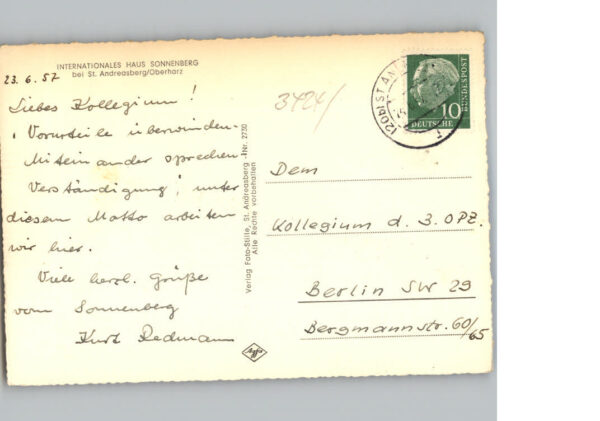 INTERNATIONALES HAUS SONNENBERG
bei St. Andreasberg/Oberharz
23.6.57
Liebes Kollegium!
"Vorurteile überwinden-
Miteinander sprechen-
Verständigung", unter
diesem Motto arbeiten
wir hier.
Viele herzl. Grüße
vom Sonnenberg
Kurt Redmann
Verlag Foto-Stille, St. Andreasberg - Nr. 2730
Alle Rechte vorbehalten
3424/
(20b) ST. AND
10
DEUTSCHE
BUNDESPOST
Dem
Kollegium d. 3. OPZ.
Berlin SW 29
Bergmannstr. 60/65
Agfa